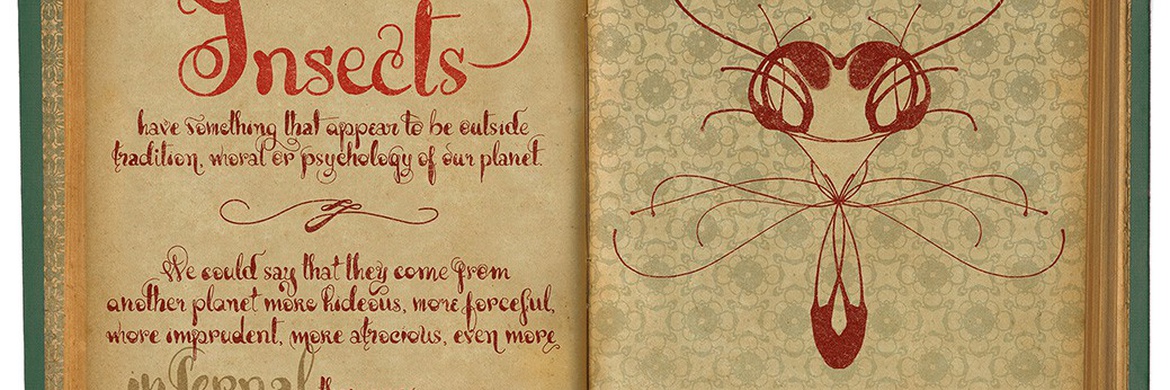 Insects
have something that appear to be outside
tradition, moral or psychology of our planet.
We could say that they come from
another planet more hideous, more forceful,
more imprudent, more atrocious, even more
infernal